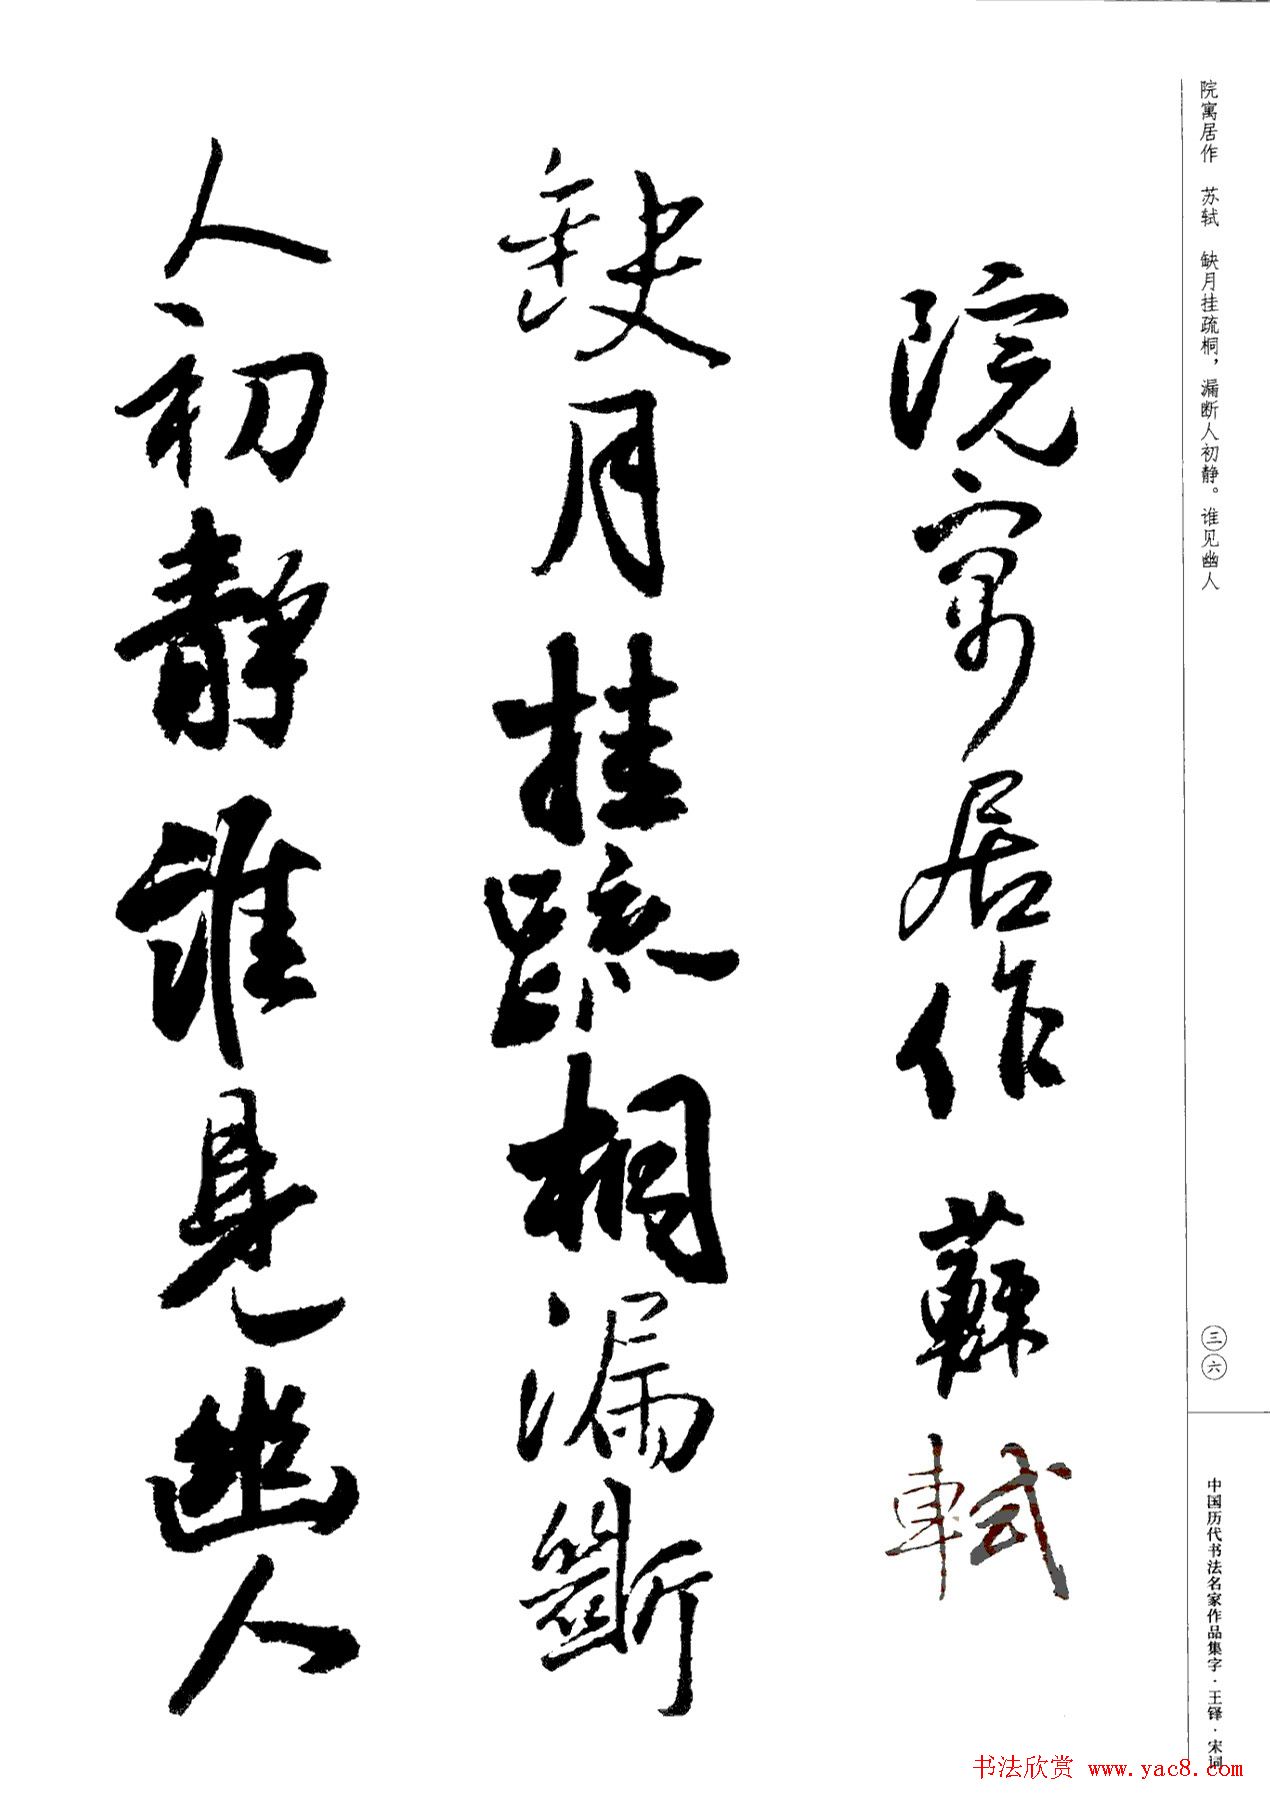 院寓居作　苏轼　缺月挂疏桐，漏断人初静。谁见幽人
三六
中国历代书法名家作品集字·王铎·宋词
院寓居作　蘇軾
缺月挂疏桐漏斷
人初靜誰見幽人
书法欣赏 www.yac8.com